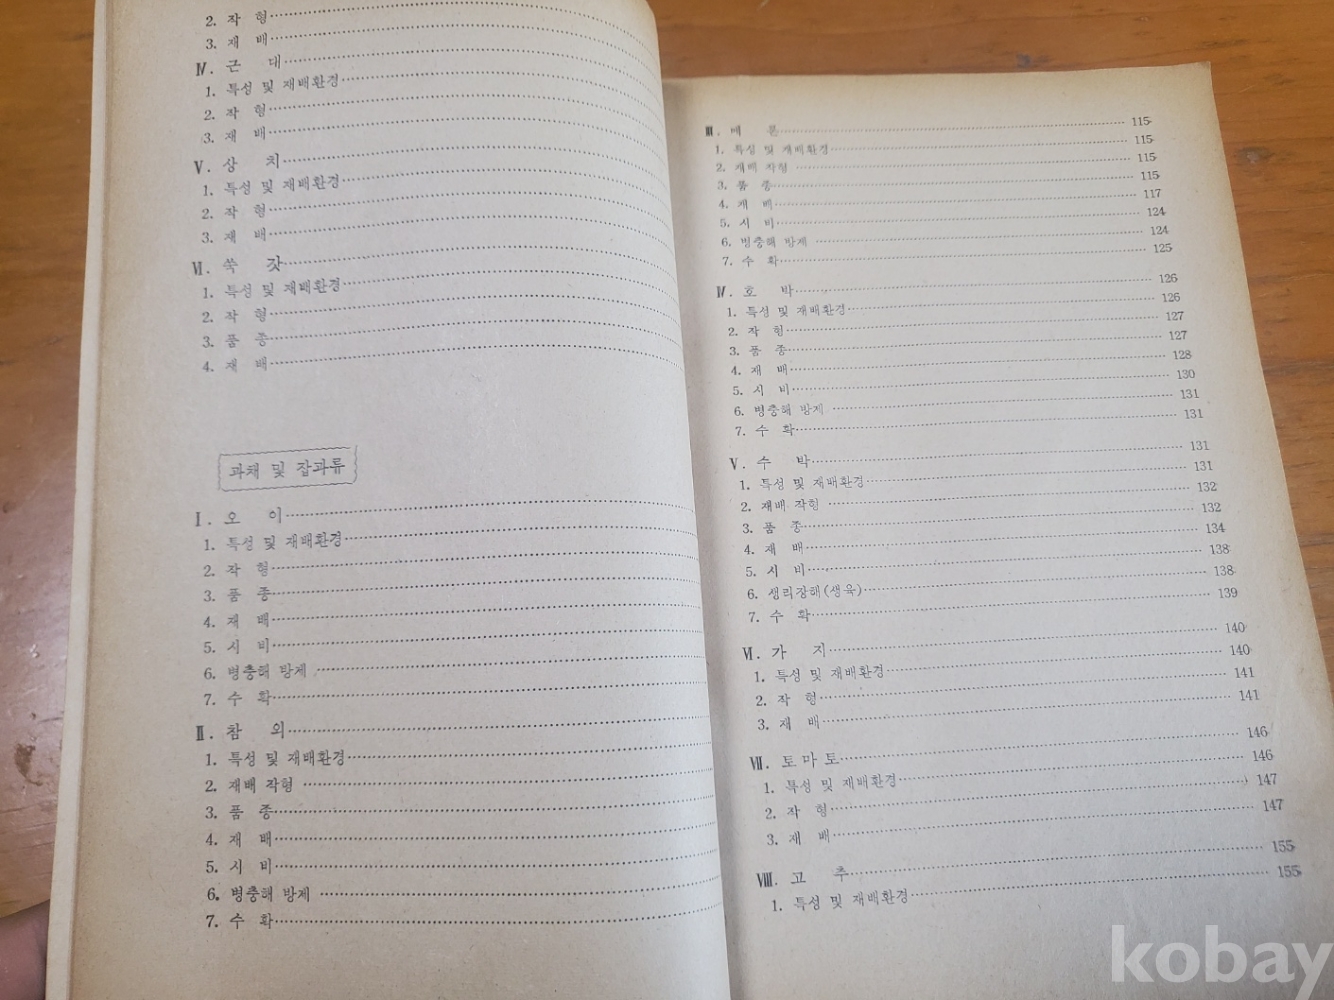 2. 작 형
3. 재 배
Ⅳ. 근 대
1. 특성 및 재배환경
2. 작 형
3. 재 배
Ⅴ. 상 치
1. 특성 및 재배환경
2. 작 형
3. 재 배
Ⅵ. 쑥 갓
1. 특성 및 재배환경
2. 작 형
3. 품 종
4. 재 배
과채 및 잡과류
Ⅰ. 오 이
1. 특성 및 재배환경
2. 작 형
3. 품 종
4. 재 배
5. 시 비
6. 병충해 방제
7. 수 확
Ⅱ. 참 외
1. 특성 및 재배환경
2. 재배 작형
3. 품 종
4. 재 배
5. 시 비
6. 병충해 방제
7. 수 확
Ⅲ. 메 론 115
1. 특성 및 재배환경 115
2. 재배 작형 115
3. 품 종 115
4. 재 배 117
5. 시 비 124
6. 병충해 방제 124
7. 수 확 125
Ⅳ. 호 박 126
1. 특성 및 재배환경 126
2. 작 형 127
3. 품 종 127
4. 재 배 128
5. 시 비 130
6. 병충해 방제 131
7. 수 확 131
Ⅴ. 수 박 131
1. 특성 및 재배환경 131
2. 재배 작형 132
3. 품 종 132
4. 재 배 134
5. 시 비 138
6. 생리장해(생육) 138
7. 수 확 139
Ⅵ. 가 지 140
1. 특성 및 재배환경 140
2. 작 형 141
3. 재 배 141
Ⅶ. 토마토 146
1. 특성 및 재배환경 146
2. 작 형 147
3. 재 배 147
Ⅷ. 고 추 155
1. 특성 및 재배환경 155
kobay